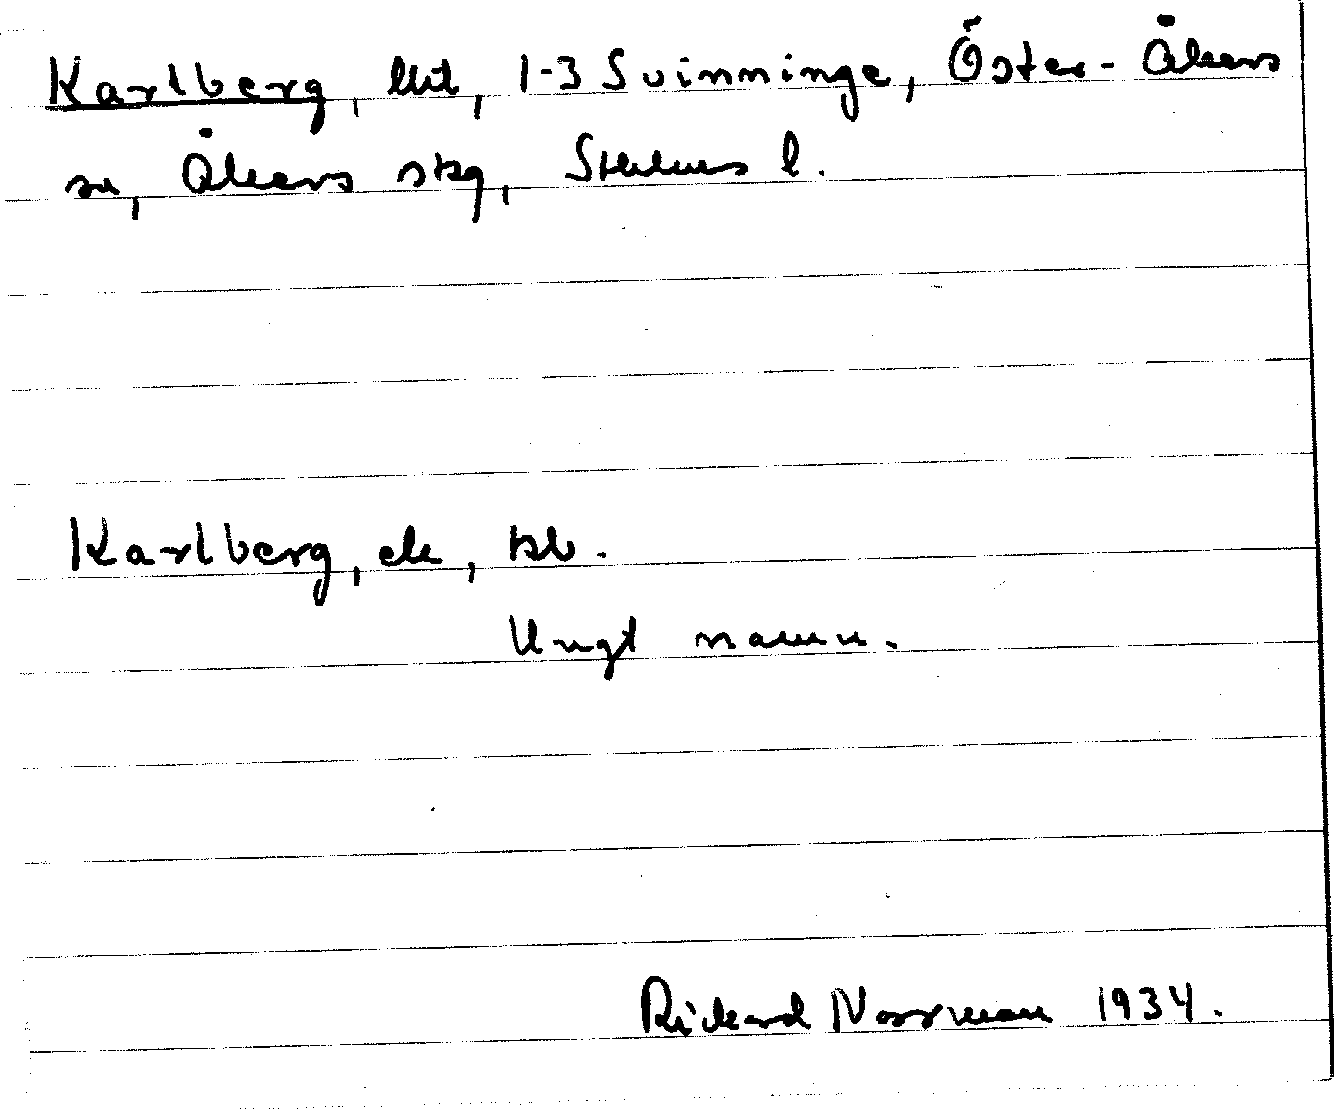 Karlberg, lht, 1-3 Svinninge, Öster-Åkers
sn, Åkers skg, Sthlms l.
Karlberg, ek, tsb.
Ungt namn.
Rickard Norrman 1934.